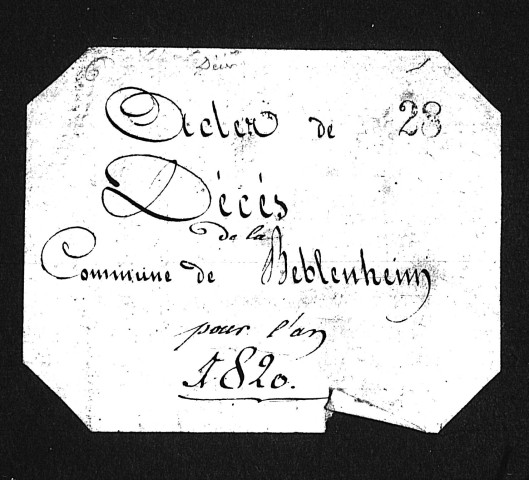 Décès
Actes de 23
Décès
de la
Commune de Beblenheim
pour l'an
1820.